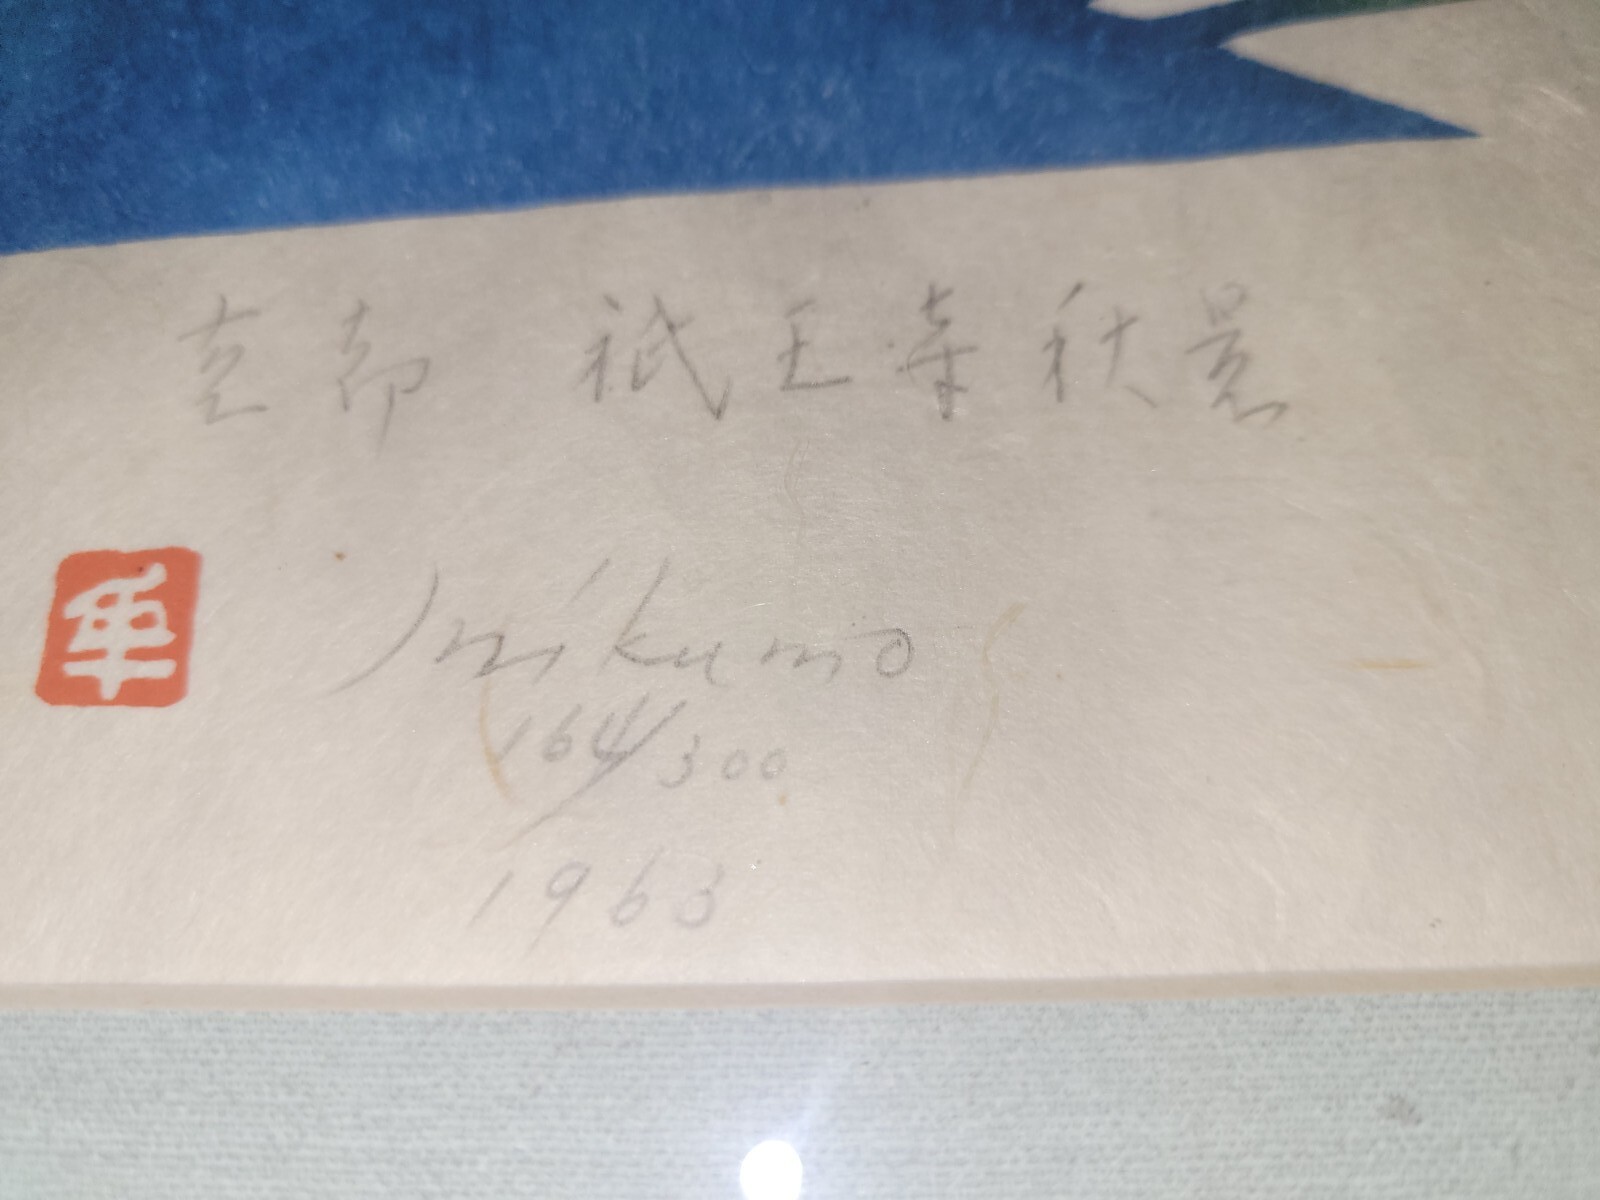 京都 祇王寺秋景
隼
J mikumo
164/300
1963